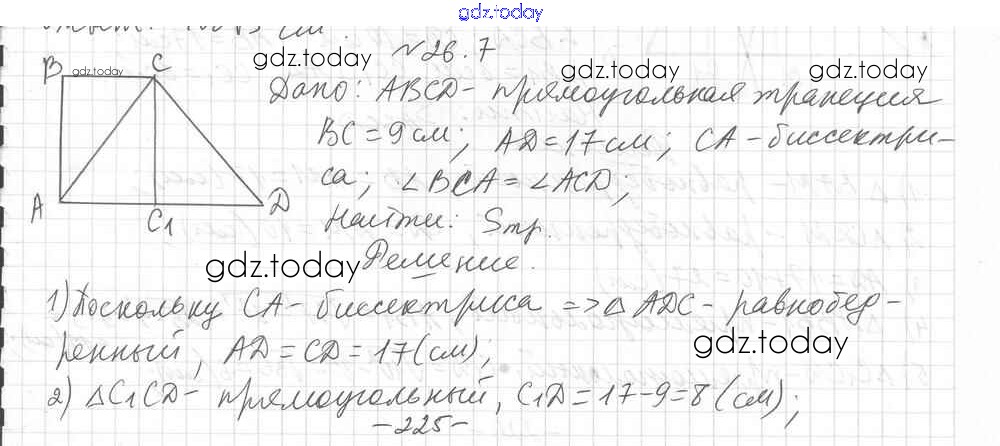 gdz.today
см.
№26.7
gdz.today
B gdz.today C
Дано: ABCD - прямоугольная трапеция
gdz.today gdz.today
BC = 9 см; AD = 17 см; CA - биссектри-
са; ∠BCA = ∠ACD;
A C1 D
Найти: Sтр.
Решение.
gdz.today
1) Поскольку CA - биссектриса => △ ADC - равнобед-
ренный, AD = CD = 17 (см);
gdz.today
2) △C1CD - прямоугольный, C1D = 17-9=8 (см);
-225-